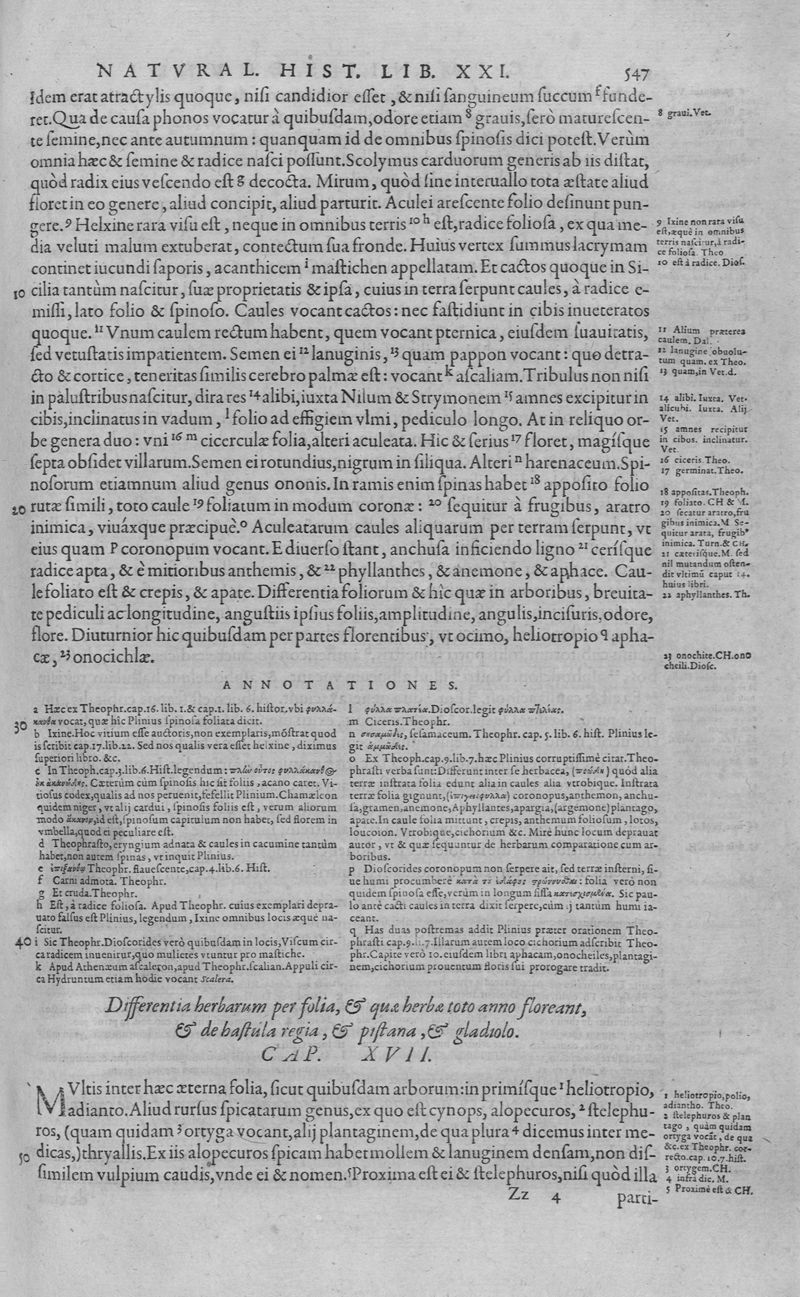 NATVRAL. HIST. LIB. XXI. 547
Idem erat atractylis quoque, nisi candidior esset, & nisi sanguineum succum f funde-
ret. Qua de causa phonos vocatur à quibusdam, odore etiam 8 grauis, serò maturescen-
te semine, nec ante autumnum: quanquam id de omnibus spinosis dici potest. Verùm
omnia hæc & semine & radice nasci possunt. Scolymus carduorum generis ab iis distat,
quòd radix eius vescendo est g decocta. Mirum, quòd sine interuallo tota æstate aliud
floret in eo genere, aliud concipit, aliud parturit. Aculei arescente folio desinunt pun-
gere. 9 Helxine rara visu est, neque in omnibus terris 10 h est, radice foliosa, ex qua me-
dia veluti malum extuberat, contectum sua fronde. Huius vertex summus lacrymam
continet iucundi saporis, acanthicem i mastichen appellatam. Et cactos quoque in Si-
10 cilia tantùm nascitur, suæ proprietatis & ipsa, cuius in terra serpunt caules, à radice e-
missi, lato folio & spinoso. Caules vocant cactos: nec fastidiunt in cibis inueteratos
quoque. 11 Vnum caulem rectum habent, quem vocant pternica, eiusdem suauitatis,
sed vetustatis impatientem. Semen ei 12 lanuginis, 13 quam pappon vocant: quo detra-
cto & cortice, teneritas similis cerebro palmæ est: vocant k ascaliam. Tribulus non nisi
in palustribus nascitur, dira res 14 alibi, iuxta Nilum & Strymonem 15 amnes excipitur in
cibis, inclinatus in vadum, l folio ad effigiem vlmi, pediculo longo. At in reliquo or-
be genera duo: vni 16 m cicerculæ folia, alteri aculeata. Hic & serius 17 floret, magisque
septa obsidet villarum. Semen ei rotundius, nigrum in siliqua. Alteri n harenaceum. Spi-
nosorum etiamnum aliud genus ononis. In ramis enim spinas habet 18 apposito folio
20 rutæ simili, toto caule 19 foliatum in modum coronæ: 20 sequitur à frugibus, aratro
inimica, viuáxque præcipuè. o Aculeatarum caules aliquarum per terram serpunt, vt
eius quam p coronopum vocant. E diuerso stant, anchusa inficiendo ligno 21 cerísque
radice apta, & è mitioribus anthemis, & 22 phyllanthes, & anemone, & aphace. Cau-
le foliato est & crepis, & apate. Differentia foliorum & hîc quæ in arboribus, breuita-
te pediculi ac longitudine, angustiis ipsius foliis, amplitudine, angulis, incisuris, odore,
flore. Diuturnior hic quibusdam per partes florentibus, vt ocimo, heliotropio q apha-
cæ, 23 onocichlæ.
8 graui. Vet.
9 Ixine non rara visu
est, æquè in omnibus
terris nascitur, à radi-
ce foliosa. Theo
10 est à radice. Dios.
11 Alium præterea
caulem. Dal.
12 lanugine obuolu-
tum quam. ex Theo.
13 quam, in Vet. d.
14 alibi. Iuxta. Vet.
alicubi. Iuxta. Alij
Vet.
15 amnes recipitur
in cibos. inclinatur.
Vet
16 ciceris Theo.
17 germinat. Theo.
18 appositas. Theoph.
19 foliato. CH & M.
20 secatur aratro, fru
gibus inimica. M Se-
quitur arata, frugib9
inimica. Turn. & CH.
21 cæterisque. M. sed
nil mutandum osten-
dit vltimû caput 14.
huius libri.
22 aphyllanthes. Th.
23 onochite. CH. ono
cheili. Diosc.
ANNOTATIONES.
a Hæc ex Theophr. cap. 16. lib. 1. & cap. 1. lib. 6. histor. vbi φυλλά-
30 κανθα vocat, quæ hîc Plinius spinosa foliata dicit.
b Ixine. Hoc vitium esse auctoris, non exemplaris, môstrat quod
is scribit cap. 17. lib. 22. Sed nos qualis vera esset helxine, diximus
superiori libro. &c.
c In Theoph. cap. 3. lib. 6. Hist. legendum:
Cæterùm cùm spinosis hic sit foliis, acano caret. Vi-
tiosus codex, qualis ad nos peruenit, fefellit Plinium. Chamælcon
quidem niger, vt alij cardui, spinosis foliis est, verum aliorum
modo ἄκανον, id est, spinosum capitulum non habet, sed florem in
vmbella, quod ei peculiare est.
d Theophrasto, eryngium adnata & caules in cacumine tantùm
habet, non autem spinas, vt inquit Plinius.
e Theophr. flauescente, cap. 4. lib. 6. Hist.
f Carni admota. Theophr.
g Et cruda. Theophr.
h Est, à radice foliosa. Apud Theophr. cuius exemplari depra-
uato falsus est Plinius, legendum, Ixine omnibus locis æquè na-
scitur.
40 i Sic Theophr. Dioscorides verò quibusdam in locis, Viscum cir-
ca radicem inuenirur, quo mulieres vtuntur pro mastiche.
k Apud Athenæum ascaleron, apud Theophr. scalian. Appuli cir-
ca Hydruntum etiam hodie vocant Scalera.
l φύλλα πλατέα. Dioscor. legit φύλλα πτελέας.
m Ciceris. Theophr.
n σησαμῶδες, sesamaceum. Theophr. cap. 5. lib. 6. hist. Plinius le-
git ἀμμῶδες.
o Ex Theoph. cap. 9. lib. 7. hæc Plinius corruptissimè citat. Theo-
phrasti verba sunt: Differunt inter se herbacea, (ποώδη) quòd alia
terræ instrata folia edunt alia in caules alia vtrobique. Instrata
terræ folia gignunt, (ἐπιγειόφυλλα) coronopus, anthemon, anchu-
sa, gramen, anemone, Aphyllantes, apargia, (argemone) plantago,
apate. In caule folia mittunt, crepis, anthemum foliosum, lotos,
loucoion. Vtrobique, cichorium &c. Mirè hunc locum deprauat
autor, vt & quæ sequuntur de herbarum comparatione cum ar-
boribus.
p Dioscorides coronopum non serpere ait, sed terræ insterni, si-
ue humi procumbere κατὰ τε ἐδάφος στρωννῦσθαι: folia verò non
quidem spinosa esse, verùm in longum fissa Sic pau-
lo antè cacti caules in terra dixit serpere, cùm ij tantùm humi ia-
ceant.
q Has duas postremas addit Plinius præter orationem Theo-
phrasti cap. 9. li. 7. Illarum autem loco cichorium adscribit Theo-
phr. Capite verò 10. eiusdem libri aphacam, onocheiles, plantagi-
nem, cichorium prouentum floris sui prorogare tradit.
Differentia herbarum per folia, & quæ herbæ toto anno floreant,
& de hastula regia, & pistana, & gladiolo.
CAP. XVII.
MVltis inter hæc æterna folia, sicut quibusdam arborum: in primísque 1 heliotropio,
adianto. Aliud rursus spicatarum genus, ex quo est cynops, alopecuros, 2 stelephu-
ros, (quam quidam 3 ortyga vocant, alij plantaginem, de qua plura 4 dicemus inter me-
50 dicas,) thryallis. Ex iis alopecuros spicam habet mollem & lanuginem densam, non dis-
similem vulpium caudis, vnde ei & nomen. 5 Proxima est ei & stelephuros, nisi quòd illa
Zz 4 parti-
1 heliotropio, polio,
adiantho. Theo.
2 stelephuros & plan
tago, quàm quidam
ortyga vocãt, de qua
&c. ex Theophr. cor-
recto. cap. 10. 7. hist.
3 ortygem. CH.
4 infrà dic. M.
5 Proximè est & CH.